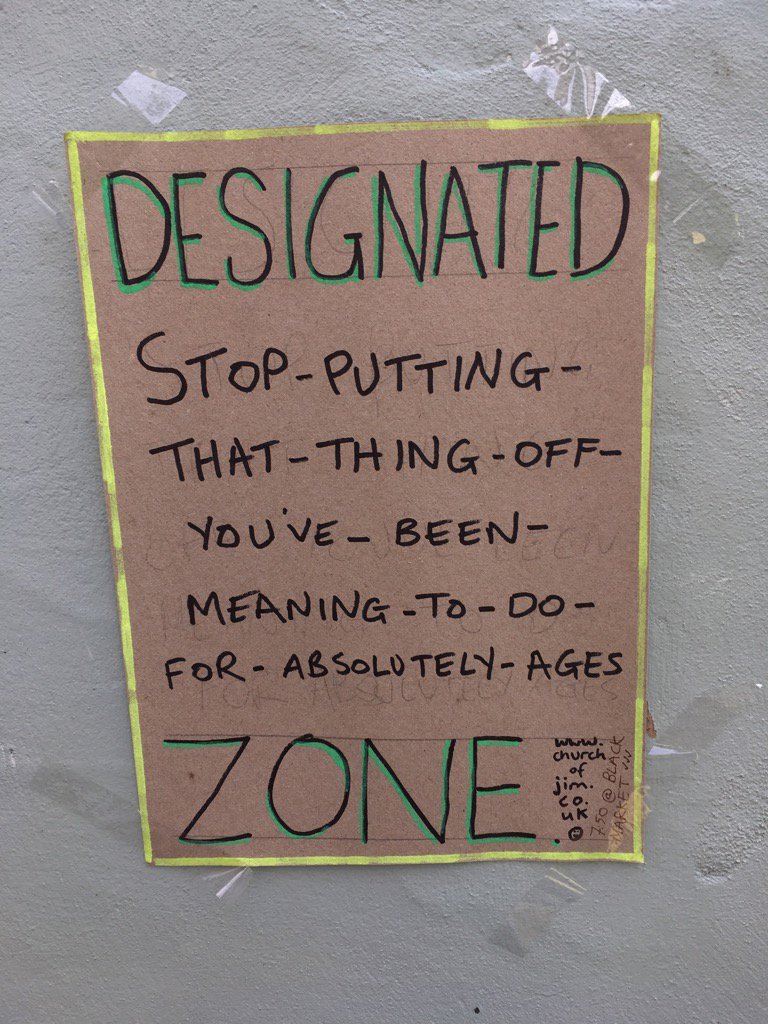 DESIGNATED
STOP-PUTTING-
THAT-THING-OFF-
YOU'VE-BEEN-
MEANING-TO-DO-
FOR-ABSOLUTELY-AGES
ZONE.
www.
church
of
jim.
co.
uk
7.50 @ BLACK
MARKET